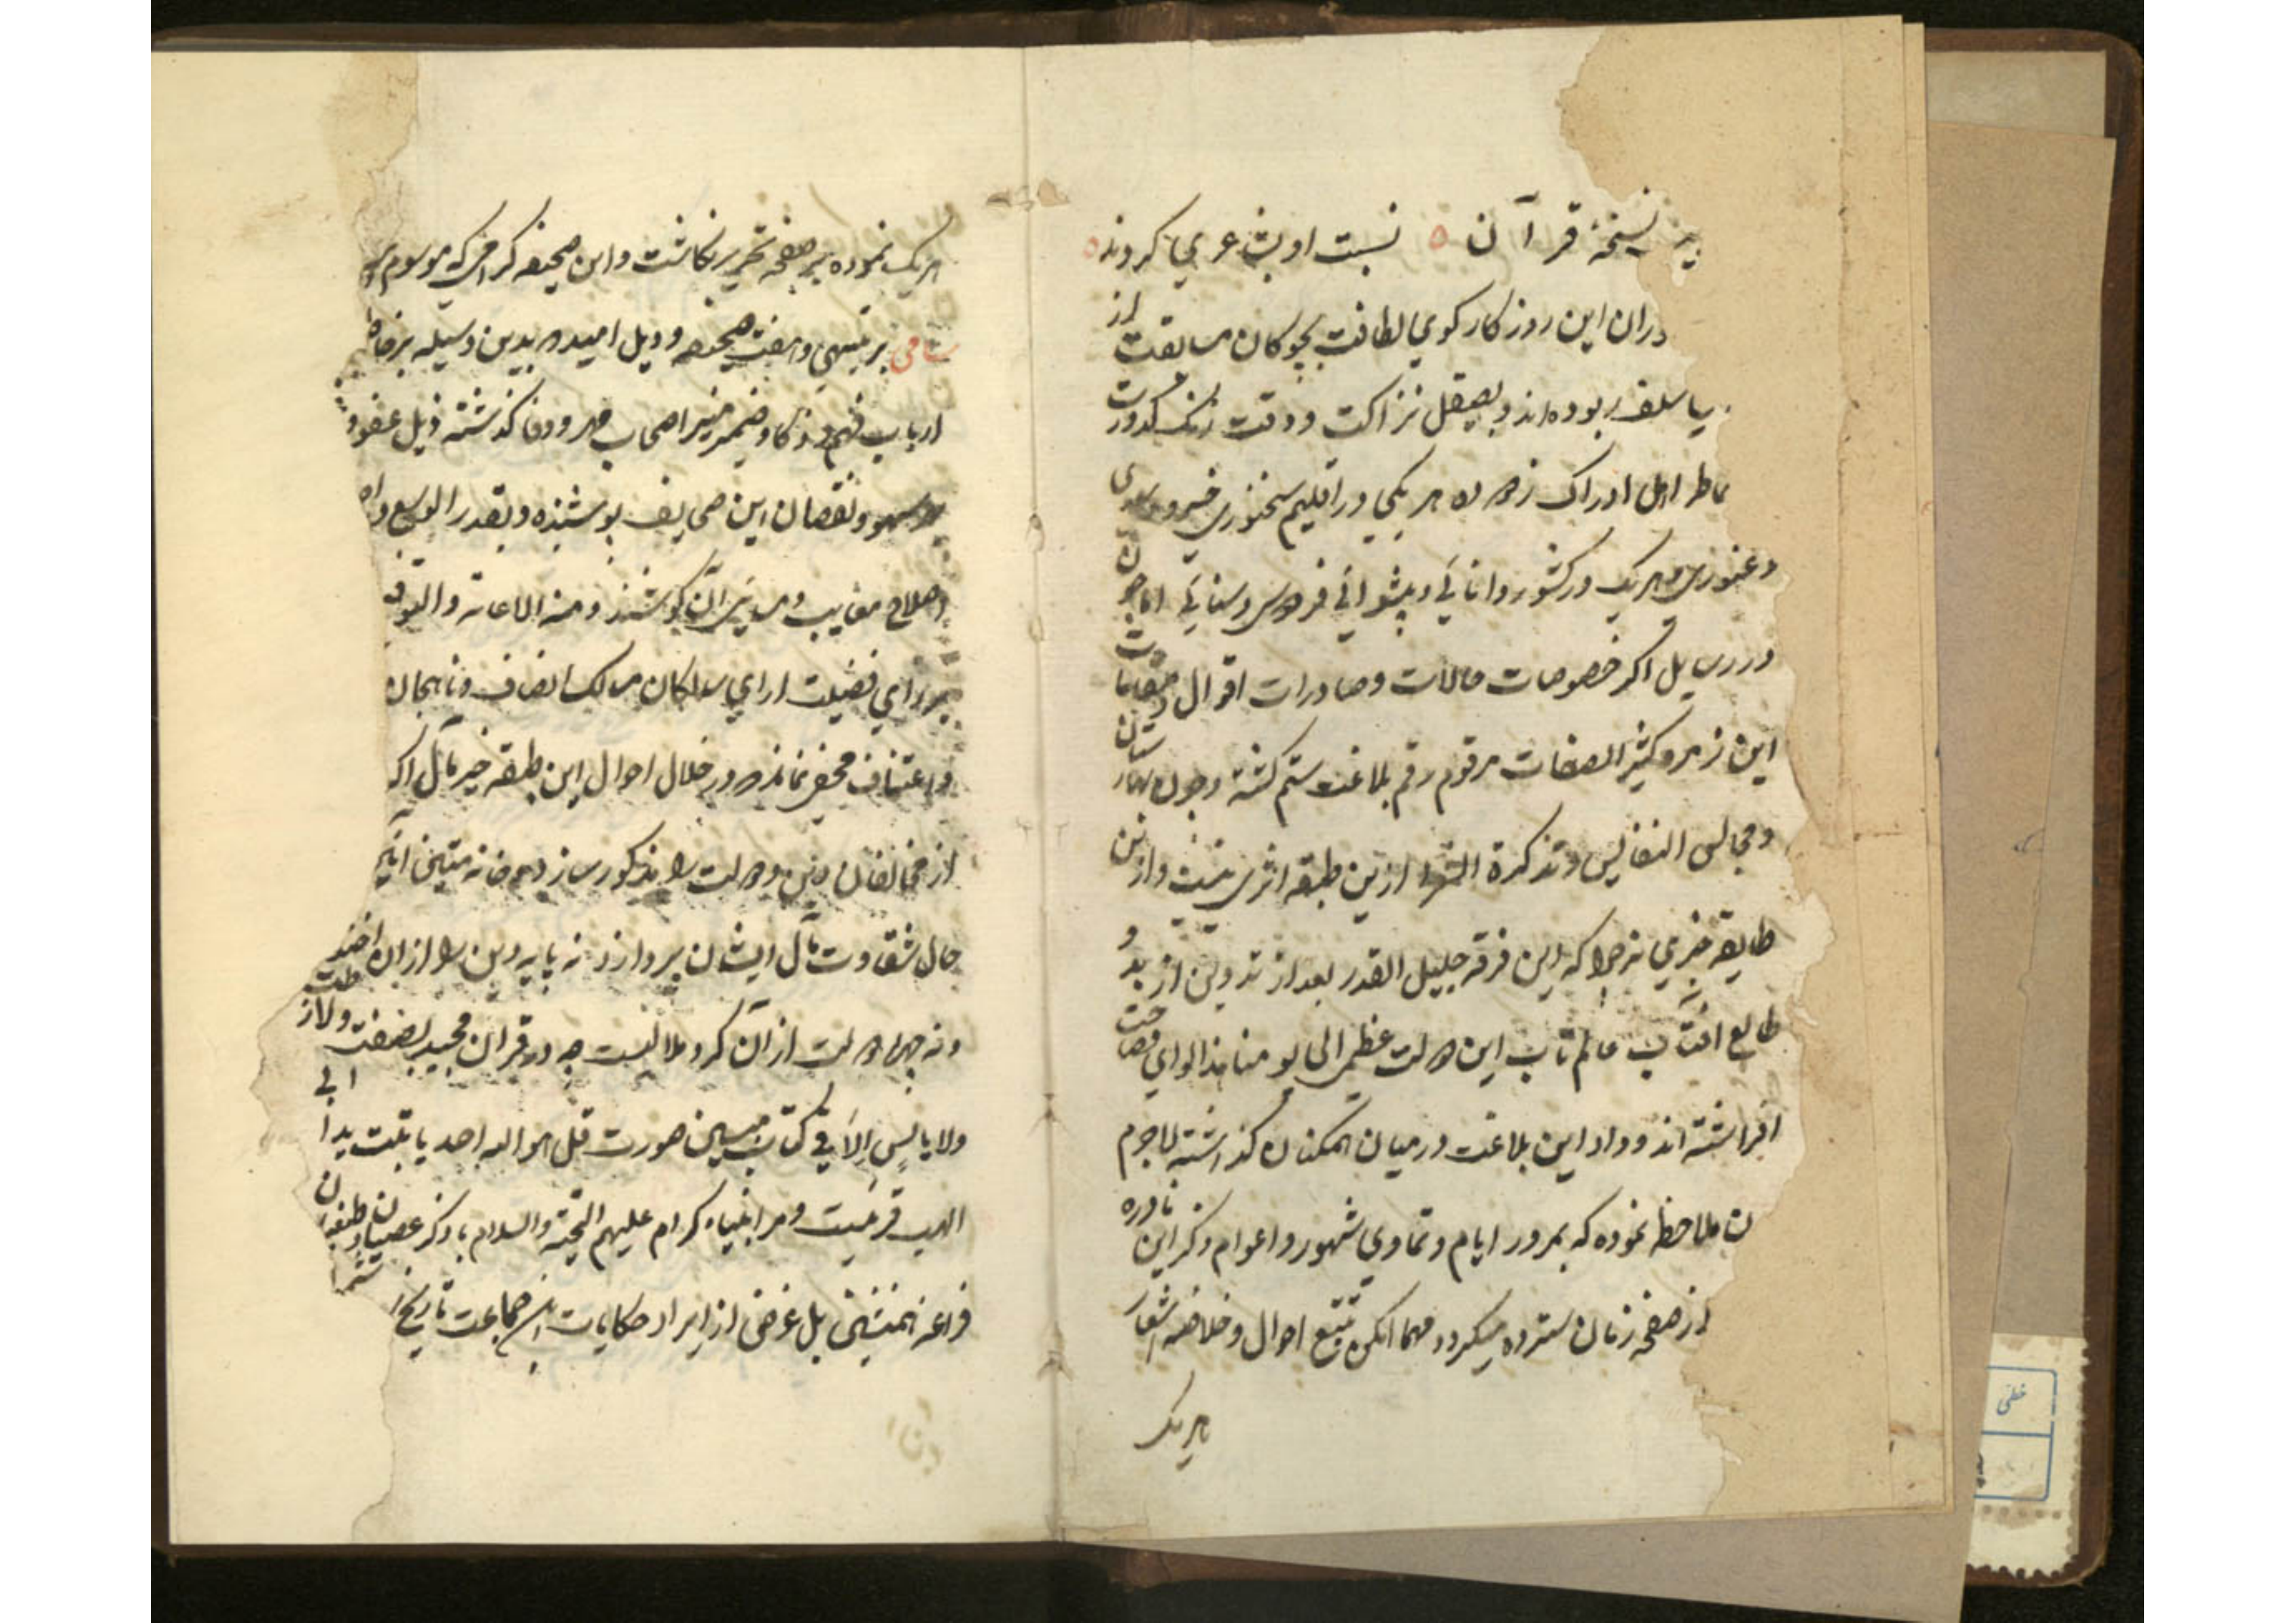 نسخهٔ قرآن ه نسبت او بشاعری کردند ه
دران این روزکار کوی لطافت بچوکان مسابقت از
سلف ربوده اند و بصیقل نزاکت و دقت زنک کدورت
خاطر اهل ادراک زدوده هر یکی در اقلیم سخنوری خسرو
هر یک در کشور دانائی و پیشوائی فردوسی و سنائی اما چون
در رسایل اکر خصوصات حالات و صادرات اقوال و مقامات
این زمره کثیر الصفات مرقوم رقم بلاغت ستم کشته و چون بهارستان
و مجالس النفائس و تذکرة الشعرا ازین طبقه اثری نیست و ازین
طایفه خبری نه چرا که این فرقه جلیل القدر بعد از تدوین از بدو
طالع افتاب عالمتاب این دولت عظمی الی یومنا هذا لوای فصاحت
افراشته اند و داد این بلاغت در میان همکنان کذاشته لاجرم
ملاحظه نموده که بمرور ایام و تمادی شهور و اعوام ذکر این نادره
از صفحه زمان سترده میکردد مهما امکن تتبع احوال و خلاصه اشعار
هر یک
هر یک نموده بر صفحه تحریر نکاشت و این صحیفه کرامی که موسوم
سامی بر تنبیهی و هفت صحیفه و ذیل امید که بدین وسیله بر خاطر
ارباب فهم و ذکا و ضمیر منیر اصحاب مهر و وفا کذشته ذیل عفو
بر سهو و نقصان این صحایف بوشیده و بقدر الوسع و
اصلاح معایب و آن کوشند و منه الاعانة و التوفیق
بر رای فضیلت ارای سالکان مسالک انصاف و ناهجان
و اعتساف مخفی نماند که در خلال احوال این طبقه خیر مآل اکر
از مخالفان دین و دولت را مذکور سازد خانه
حال شقاوت مآل ایشان بردازد نه پایه دین را ازان
و نه چهره دولت از آن کرد ملالیست چه در قران مجید بصفت ولا رطب
ولا یابس الا فی کتاب مبین صورت قل هو الله احد با تبت یدا ابی
لهب قرینست و مر انبیاء کرام علیهم التحیة و السلام با ذکر عصیان و طغیان
فراعنه همنشین بل غرض از ایراد حکایات این جماعت